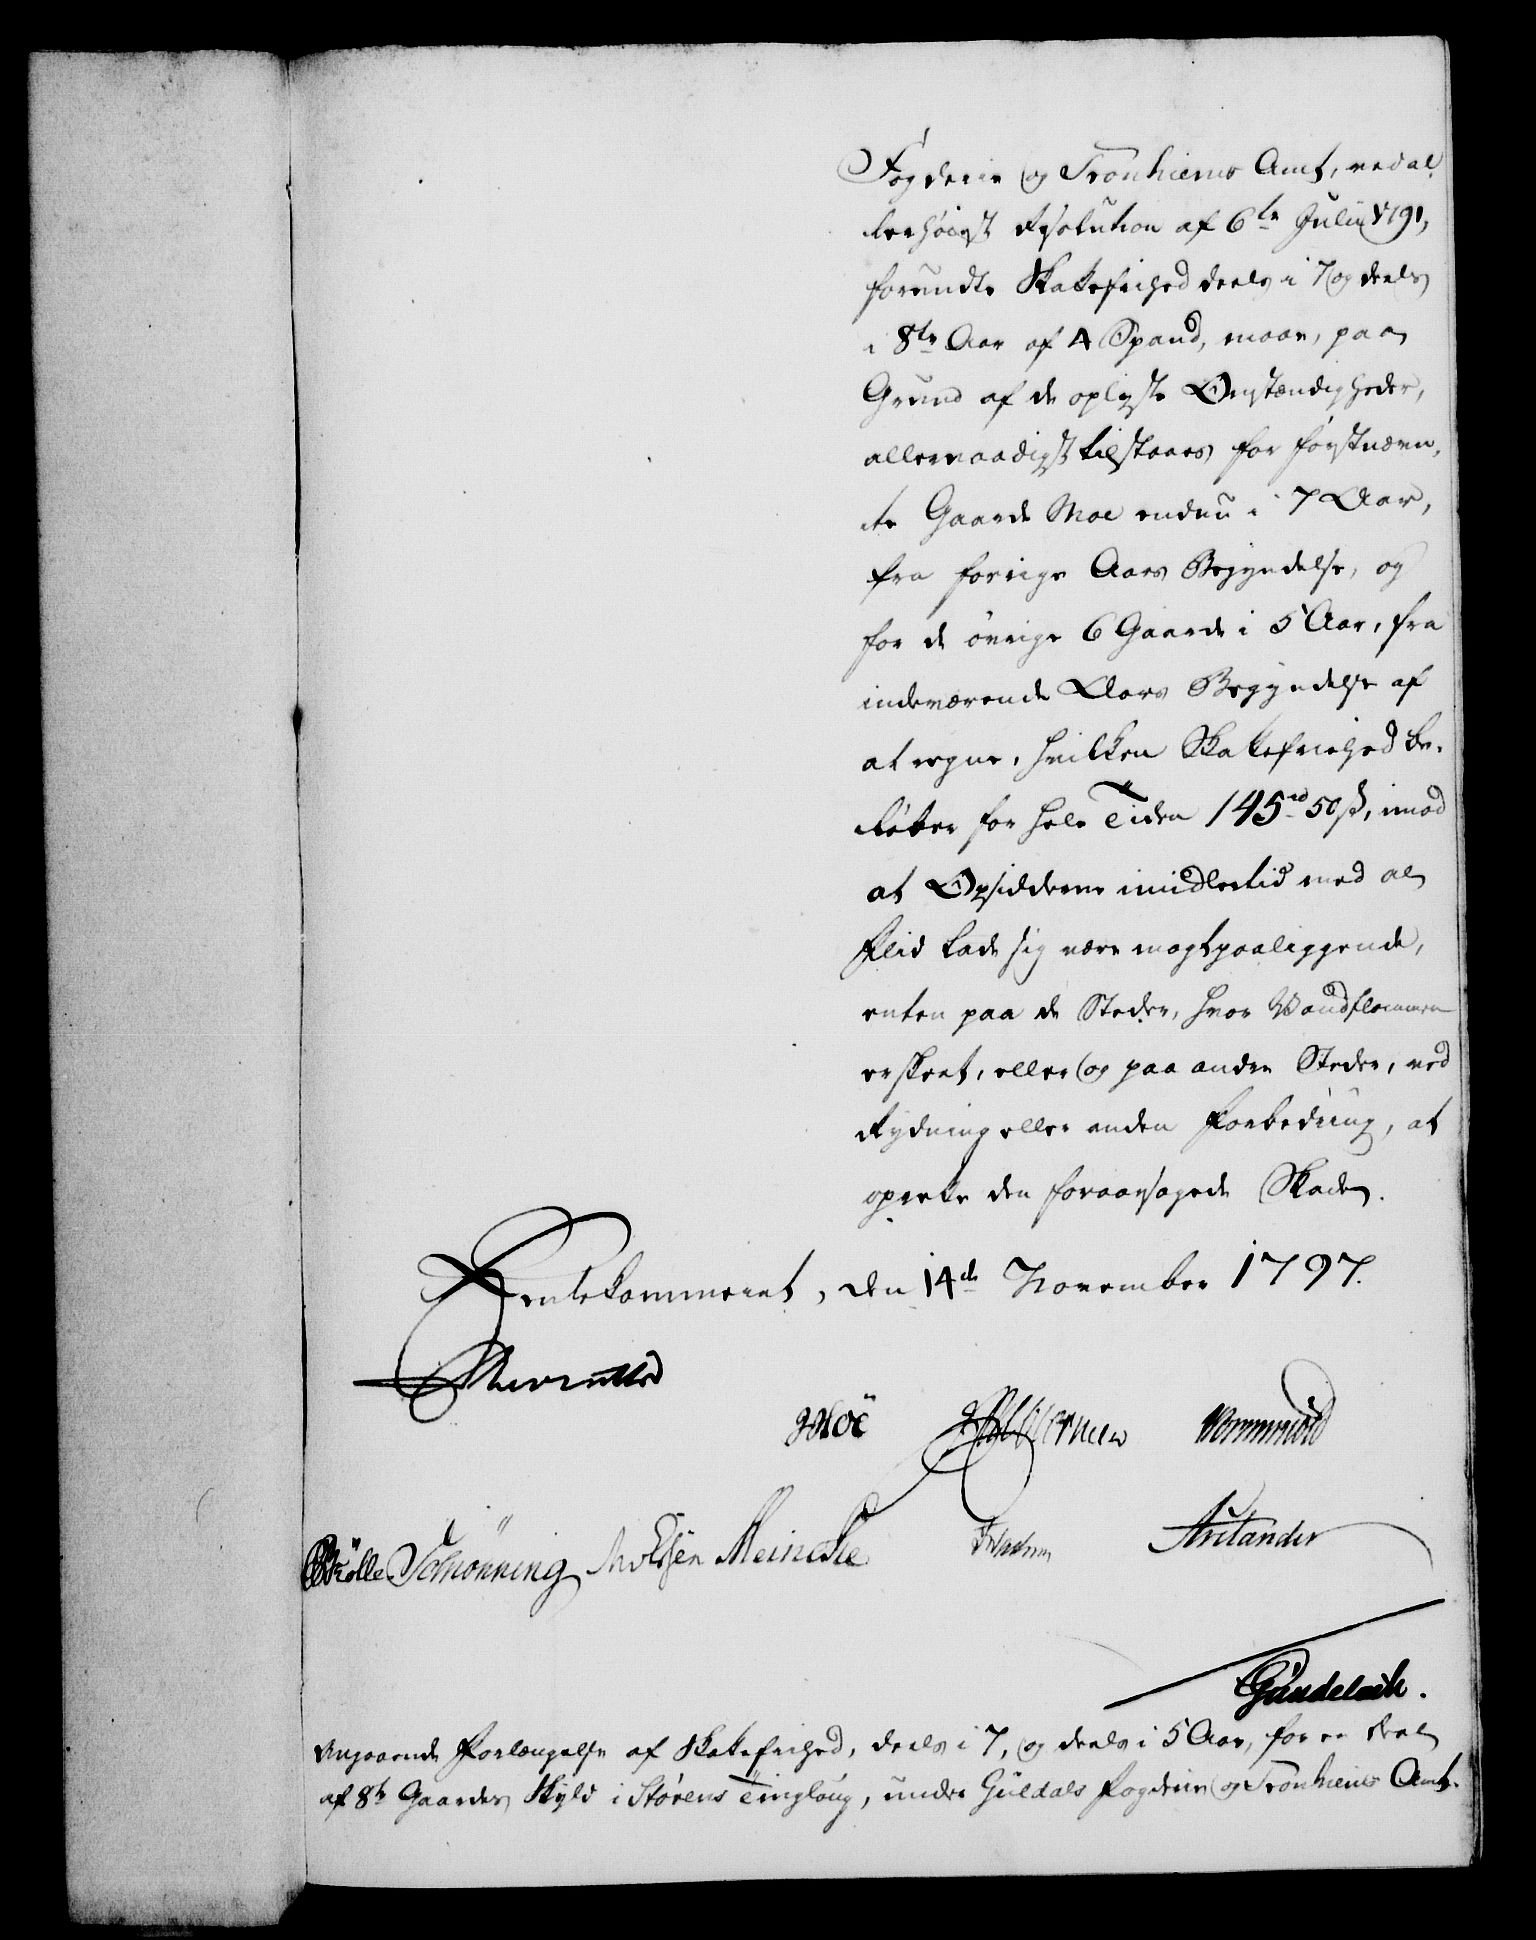 Fogderie og Tronhiems Amt, ved al-
lerhøiest Resolution af 6te Julii 1791,
forundte Skatefrihed deels i 7 og deels
i 8te Aar af 4 Spand, maae, paa
Grund af de oplyste Omstændigheder,
allernaadigst tilstaaes for førstnævn-
te Gaard Moe endnu i 7 Aar,
fra forrige Aars Begyndelse, og
for de øvrige 6 Gaarde i 5 Aar, fra
indeværende Aars Begyndelse af
at regne, hvilken Skatefriehed be-
løber for hele Tiden 145 rd 50 s, imod
at Opsidderne imidlertid med al
Fliid lade sig være magtpaaliggende,
enten paa de Steder, hvor Vandflommen
er skeet, eller og paa andre Steder, ved
Rydning eller anden Forbedring, at
oprette den foraarsagede Skade.
Rentekammeret, den 14de November 1797.
Reventlow
Moë Wormskiold
Schönning Meincke
Gundelach.
Angaaende Forlængelse af Skatefrihed, deels i 7, og deels i 5 Aar, for en Deel
af 8te Gaardes Skyld i Størens Tinglaug, under Guldals Fogderie og Tronhiems Amt.